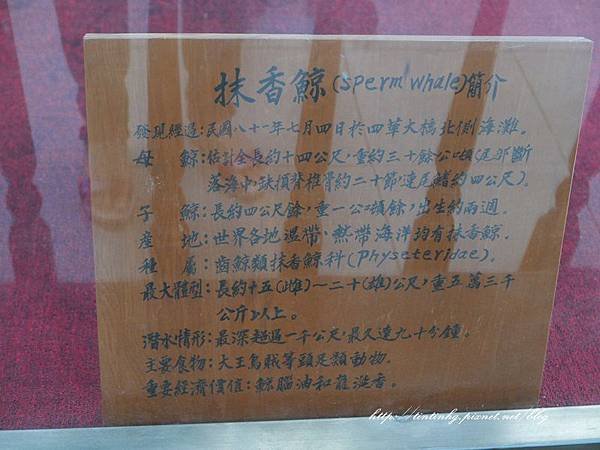 抹香鯨(Sperm Whale)簡介
發現經過:民國八十一年七月四日於四草大橋北側海灘。
母鯨:估計全長約十四公尺,重約三十餘公噸(尾部斷
落海中,缺損脊椎骨約二十節,連尾鰭約四公尺)。
子鯨:長約四公尺餘,重一公噸餘,出生約兩週。
產地:世界各地溫帶、熱帶海洋均有抹香鯨。
種屬:齒鯨類抹香鯨科(Physeteridae)。
最大體型:長約十五(雌)～二十(雄)公尺,重五萬三千
公斤以上。
潛水情形:最深超過一千公尺,最久達九十分鐘。
主要食物:大王烏賊等頭足類動物。
重要經濟價值:鯨腦油和龍涎香。
http://tintinhg.pixnet.net/blog